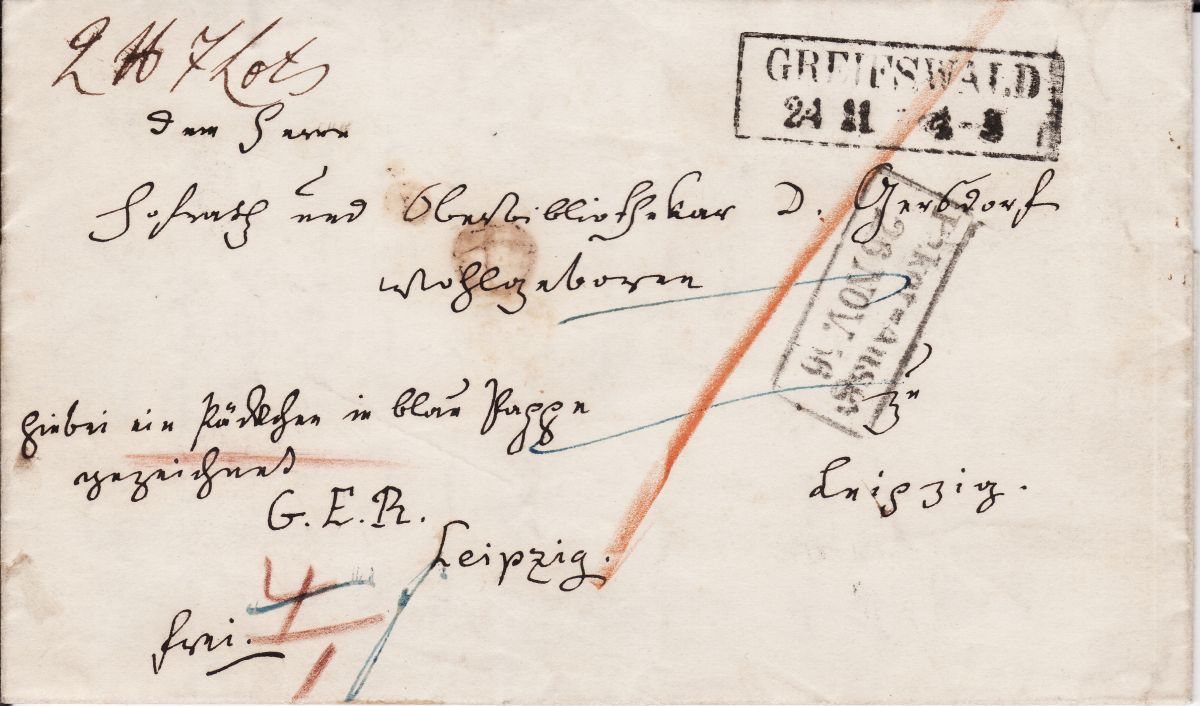 2 ℔ 7 Lots
GREIFSWALD
24 11 4-5
dem Herrn
Hofrath und Oberbibliothekar D. Gersdorf
Wohlgeboren
26 NOV. 56
hiebei ein Päckchen in blau Pappe
gezeichnet
zu
G. E. R.
Leipzig.
Leipzig.
frei.
4
1